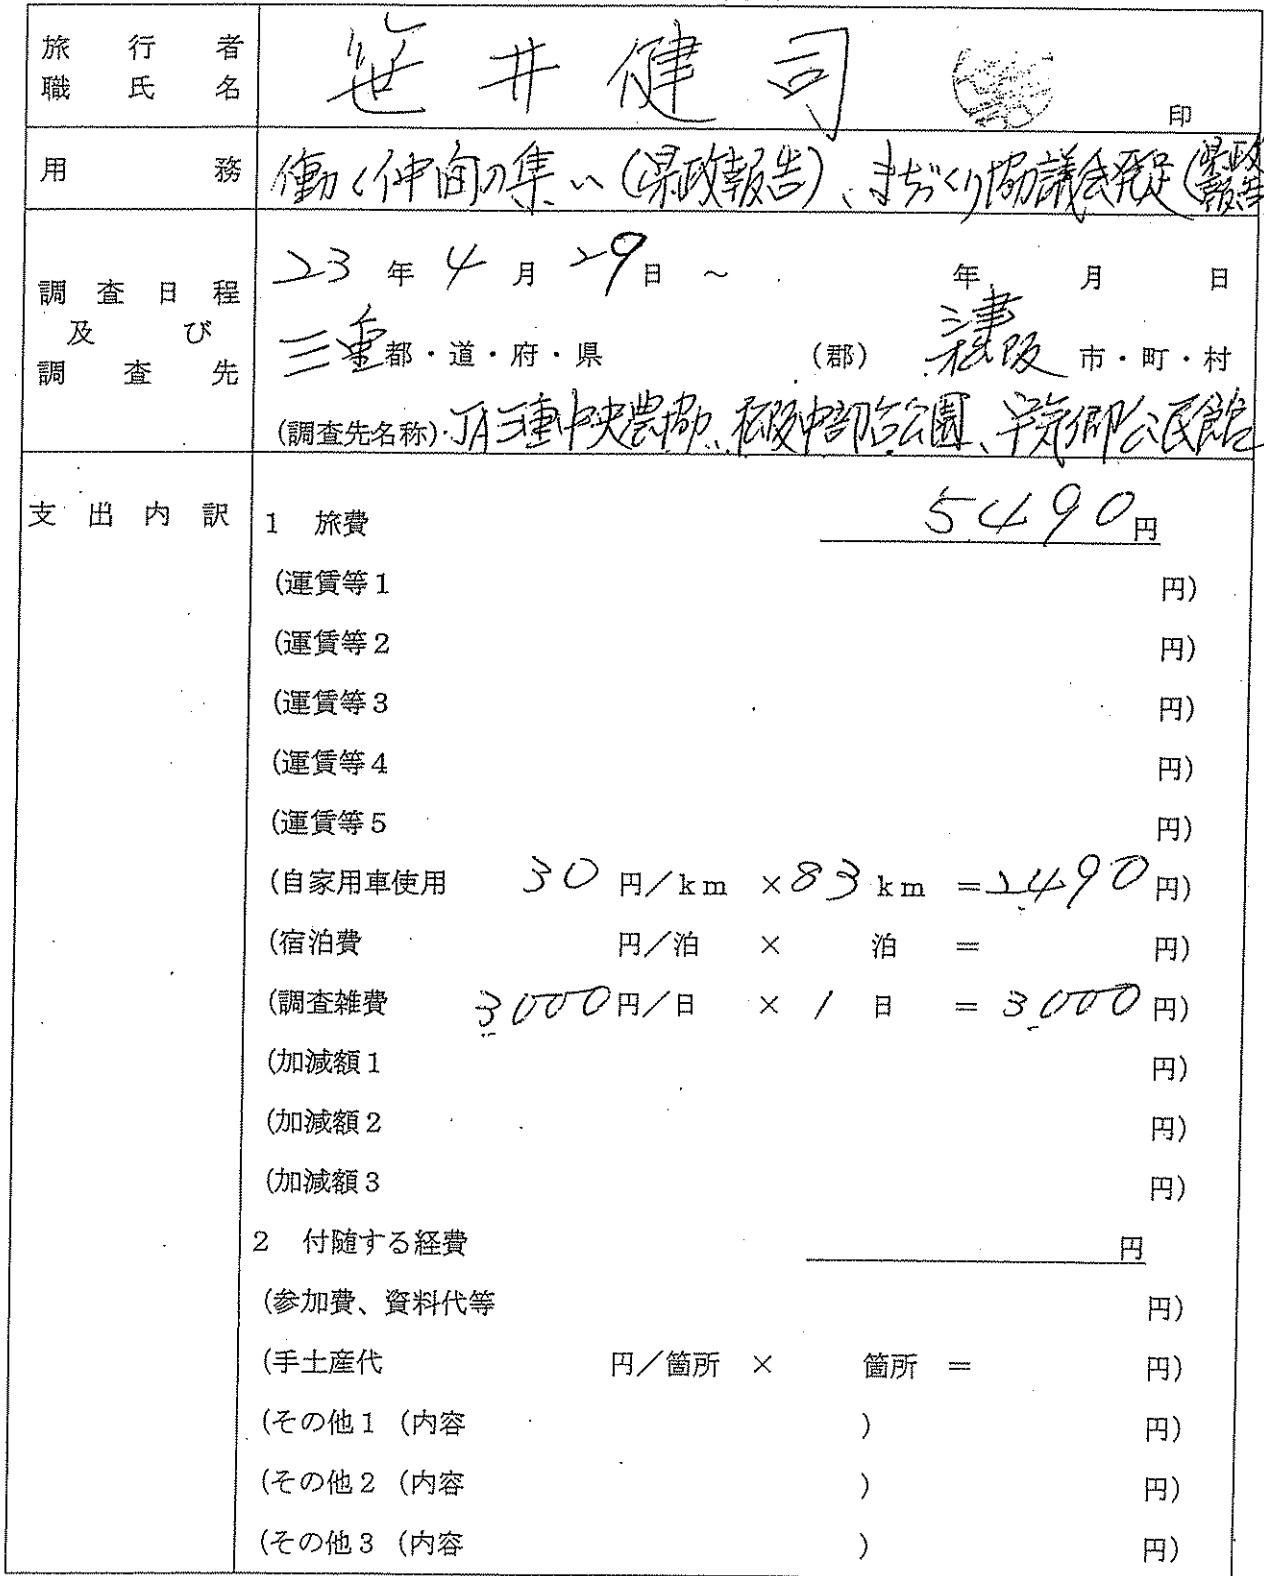 旅行者
職氏名
笹井健司 印
用務
働く仲間の集い(県政報告)、まちづくり協議会発足(県政報告
調査日程
及び
調査先
23年4月29日 ~ 年 月 日
三重都・道・府・県 (郡) 津 松阪 市・町・村
(調査先名称) JA三重中央農協、松阪中部台公園、宇気郷公民館
支出内訳
1 旅費 5490円
(運賃等1 円)
(運賃等2 円)
(運賃等3 円)
(運賃等4 円)
(運賃等5 円)
(自家用車使用 30円/km ×83km =2490円)
(宿泊費 円/泊 × 泊 = 円)
(調査雑費 3000円/日 × 1日 = 3000円)
(加減額1 円)
(加減額2 円)
(加減額3 円)
2 付随する経費 円
(参加費、資料代等 円)
(手土産代 円/箇所 × 箇所 = 円)
(その他1(内容 ) 円)
(その他2(内容 ) 円)
(その他3(内容 ) 円)